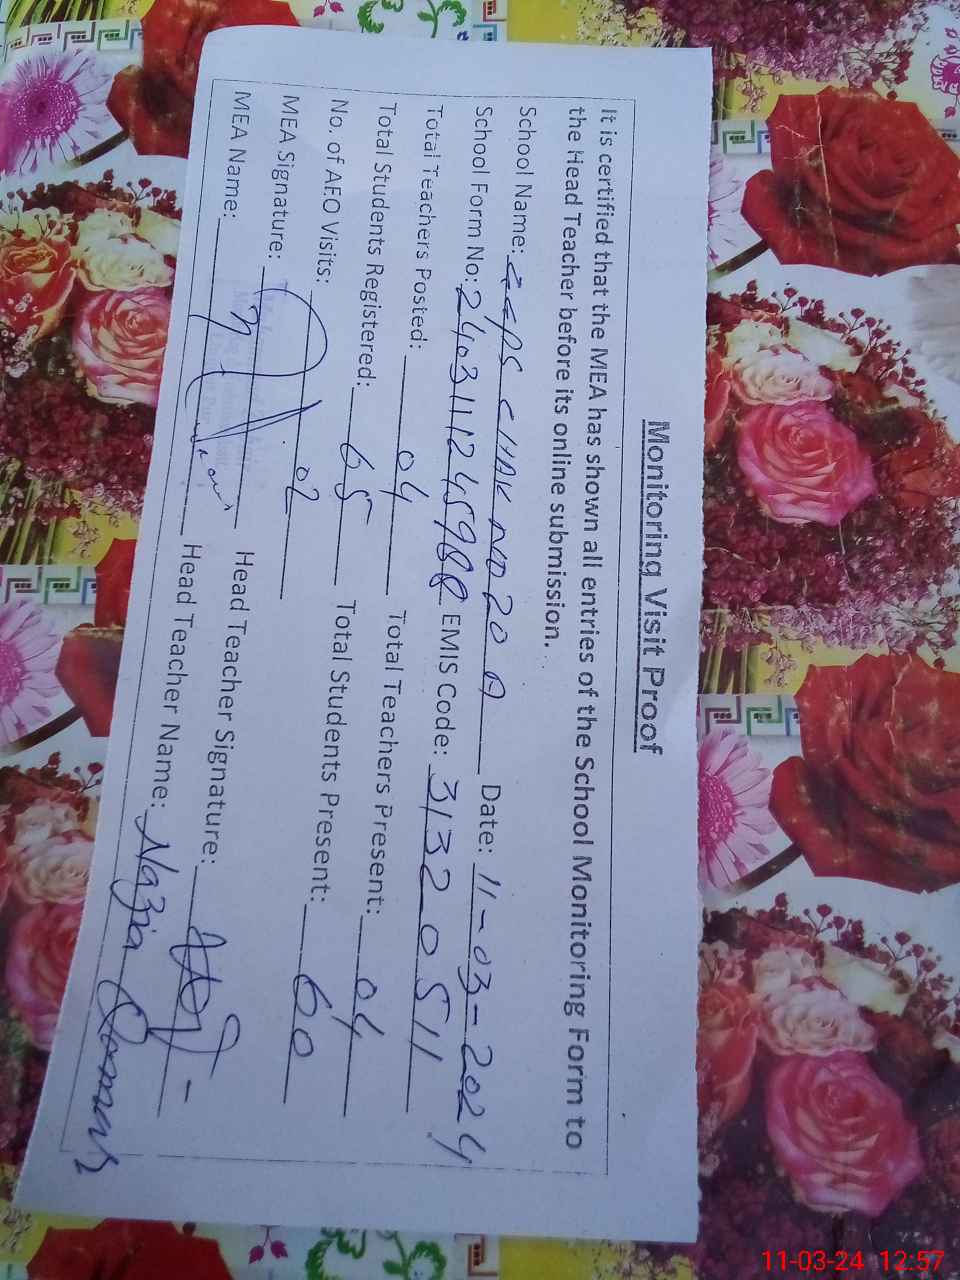 Monitoring Visit Proof
It is certified that the MEA has shown all entries of the School Monitoring Form to
the Head Teacher before its online submission.
School Name: GGPS CHAK NO 20 A Date: 11-03-2024
School Form No: EMIS Code: 31320511
Total Teachers Posted: 04 Total Teachers Present: 04
Total Students Registered: 65 Total Students Present: 60
No. of AEO Visits: 02
MEA Signature: Head Teacher Signature:
MEA Name: Head Teacher Name: Nazia
11-03-24 12:57